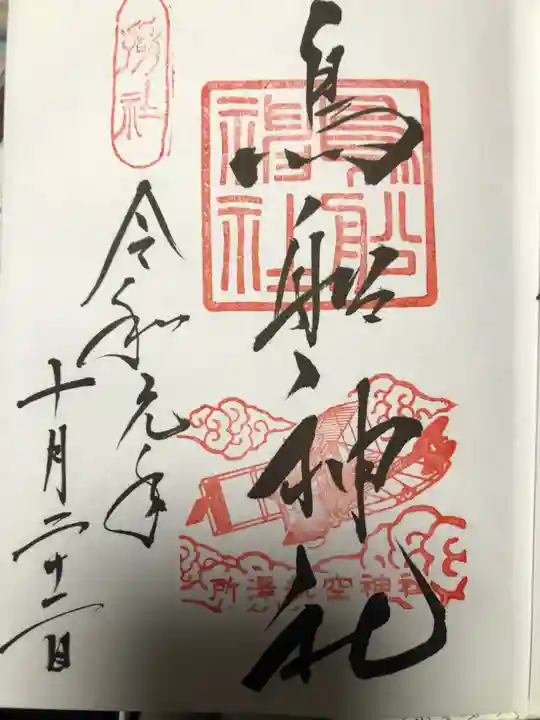 鳥船神社
鳥船
神社
所澤航空神社
令和元年
十月二十二日